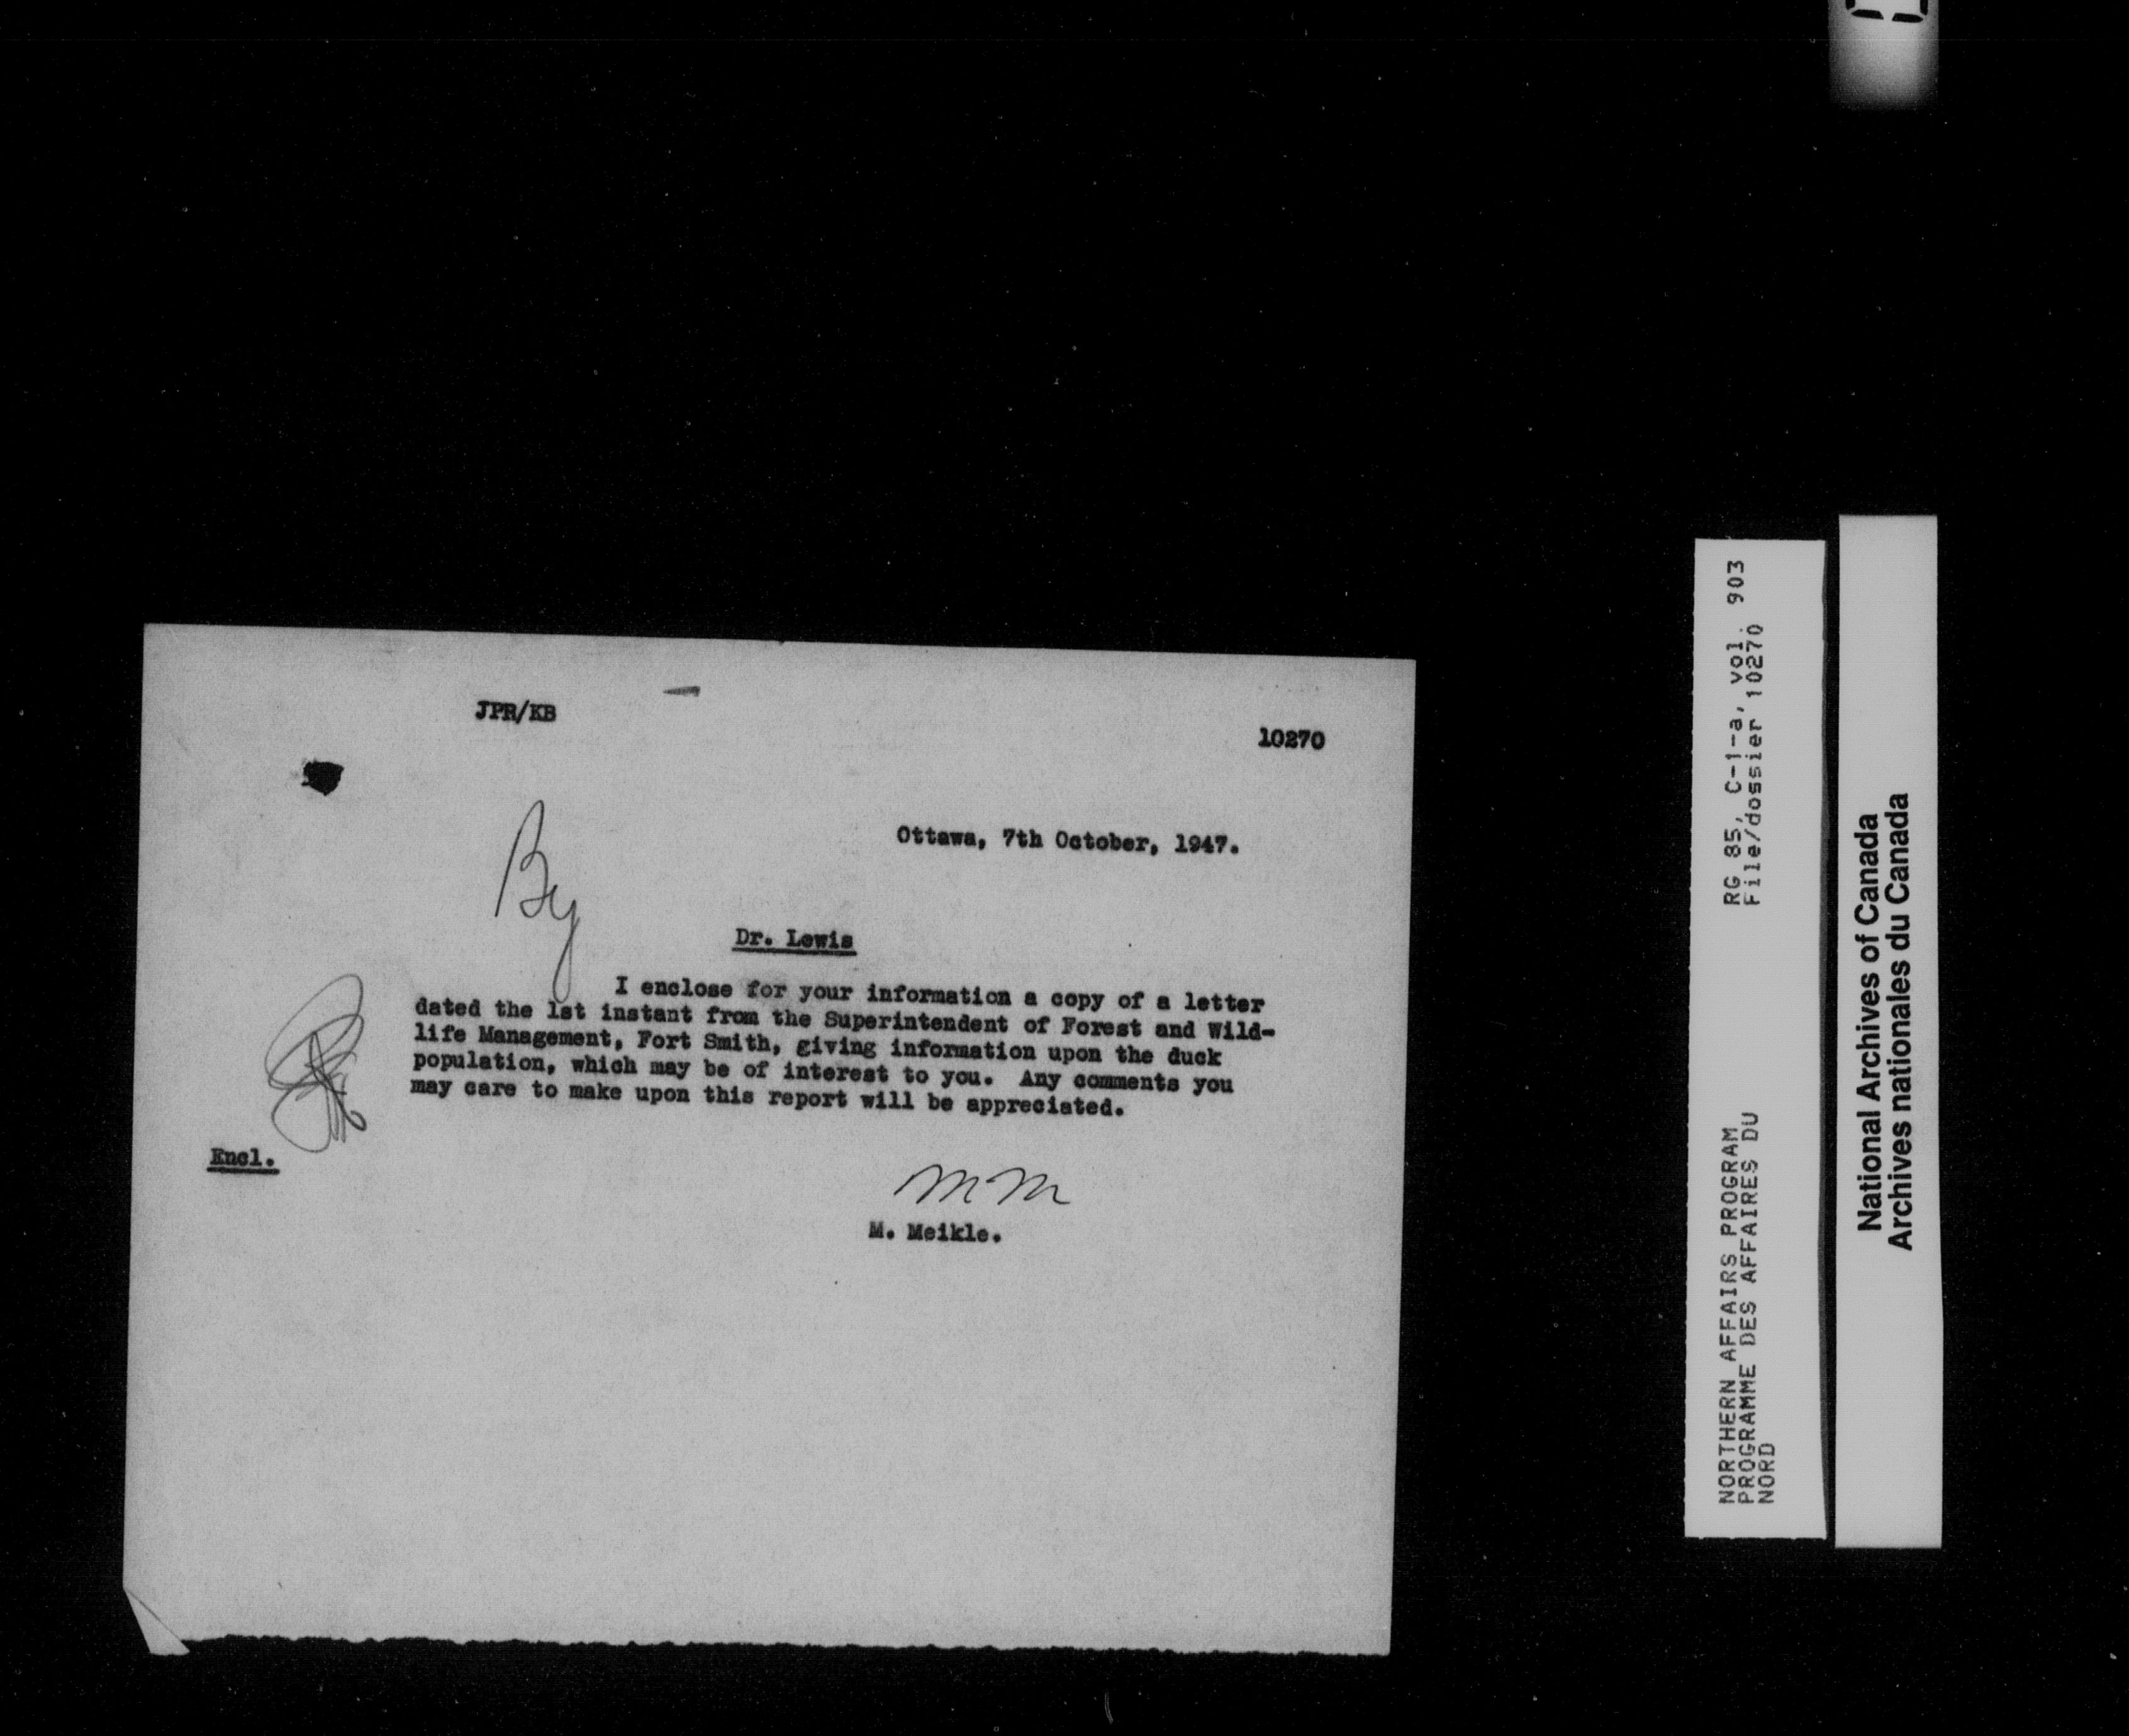 JPR/KB
10270
Ottawa, 7th October, 1947.
By
Dr. Lewis
I enclose for your information a copy of a letter
dated the 1st instant from the Superintendent of Forest and Wild-
life Management, Fort Smith, giving information upon the duck
population, which may be of interest to you. Any comments you
may care to make upon this report will be appreciated.
Encl.
MM
M. Meikle.
RG 85, C-1-a, vol. 903
File/dossier 10270
NORTHERN AFFAIRS PROGRAM
PROGRAMME DES AFFAIRES DU
NORD
National Archives of Canada
Archives nationales du Canada